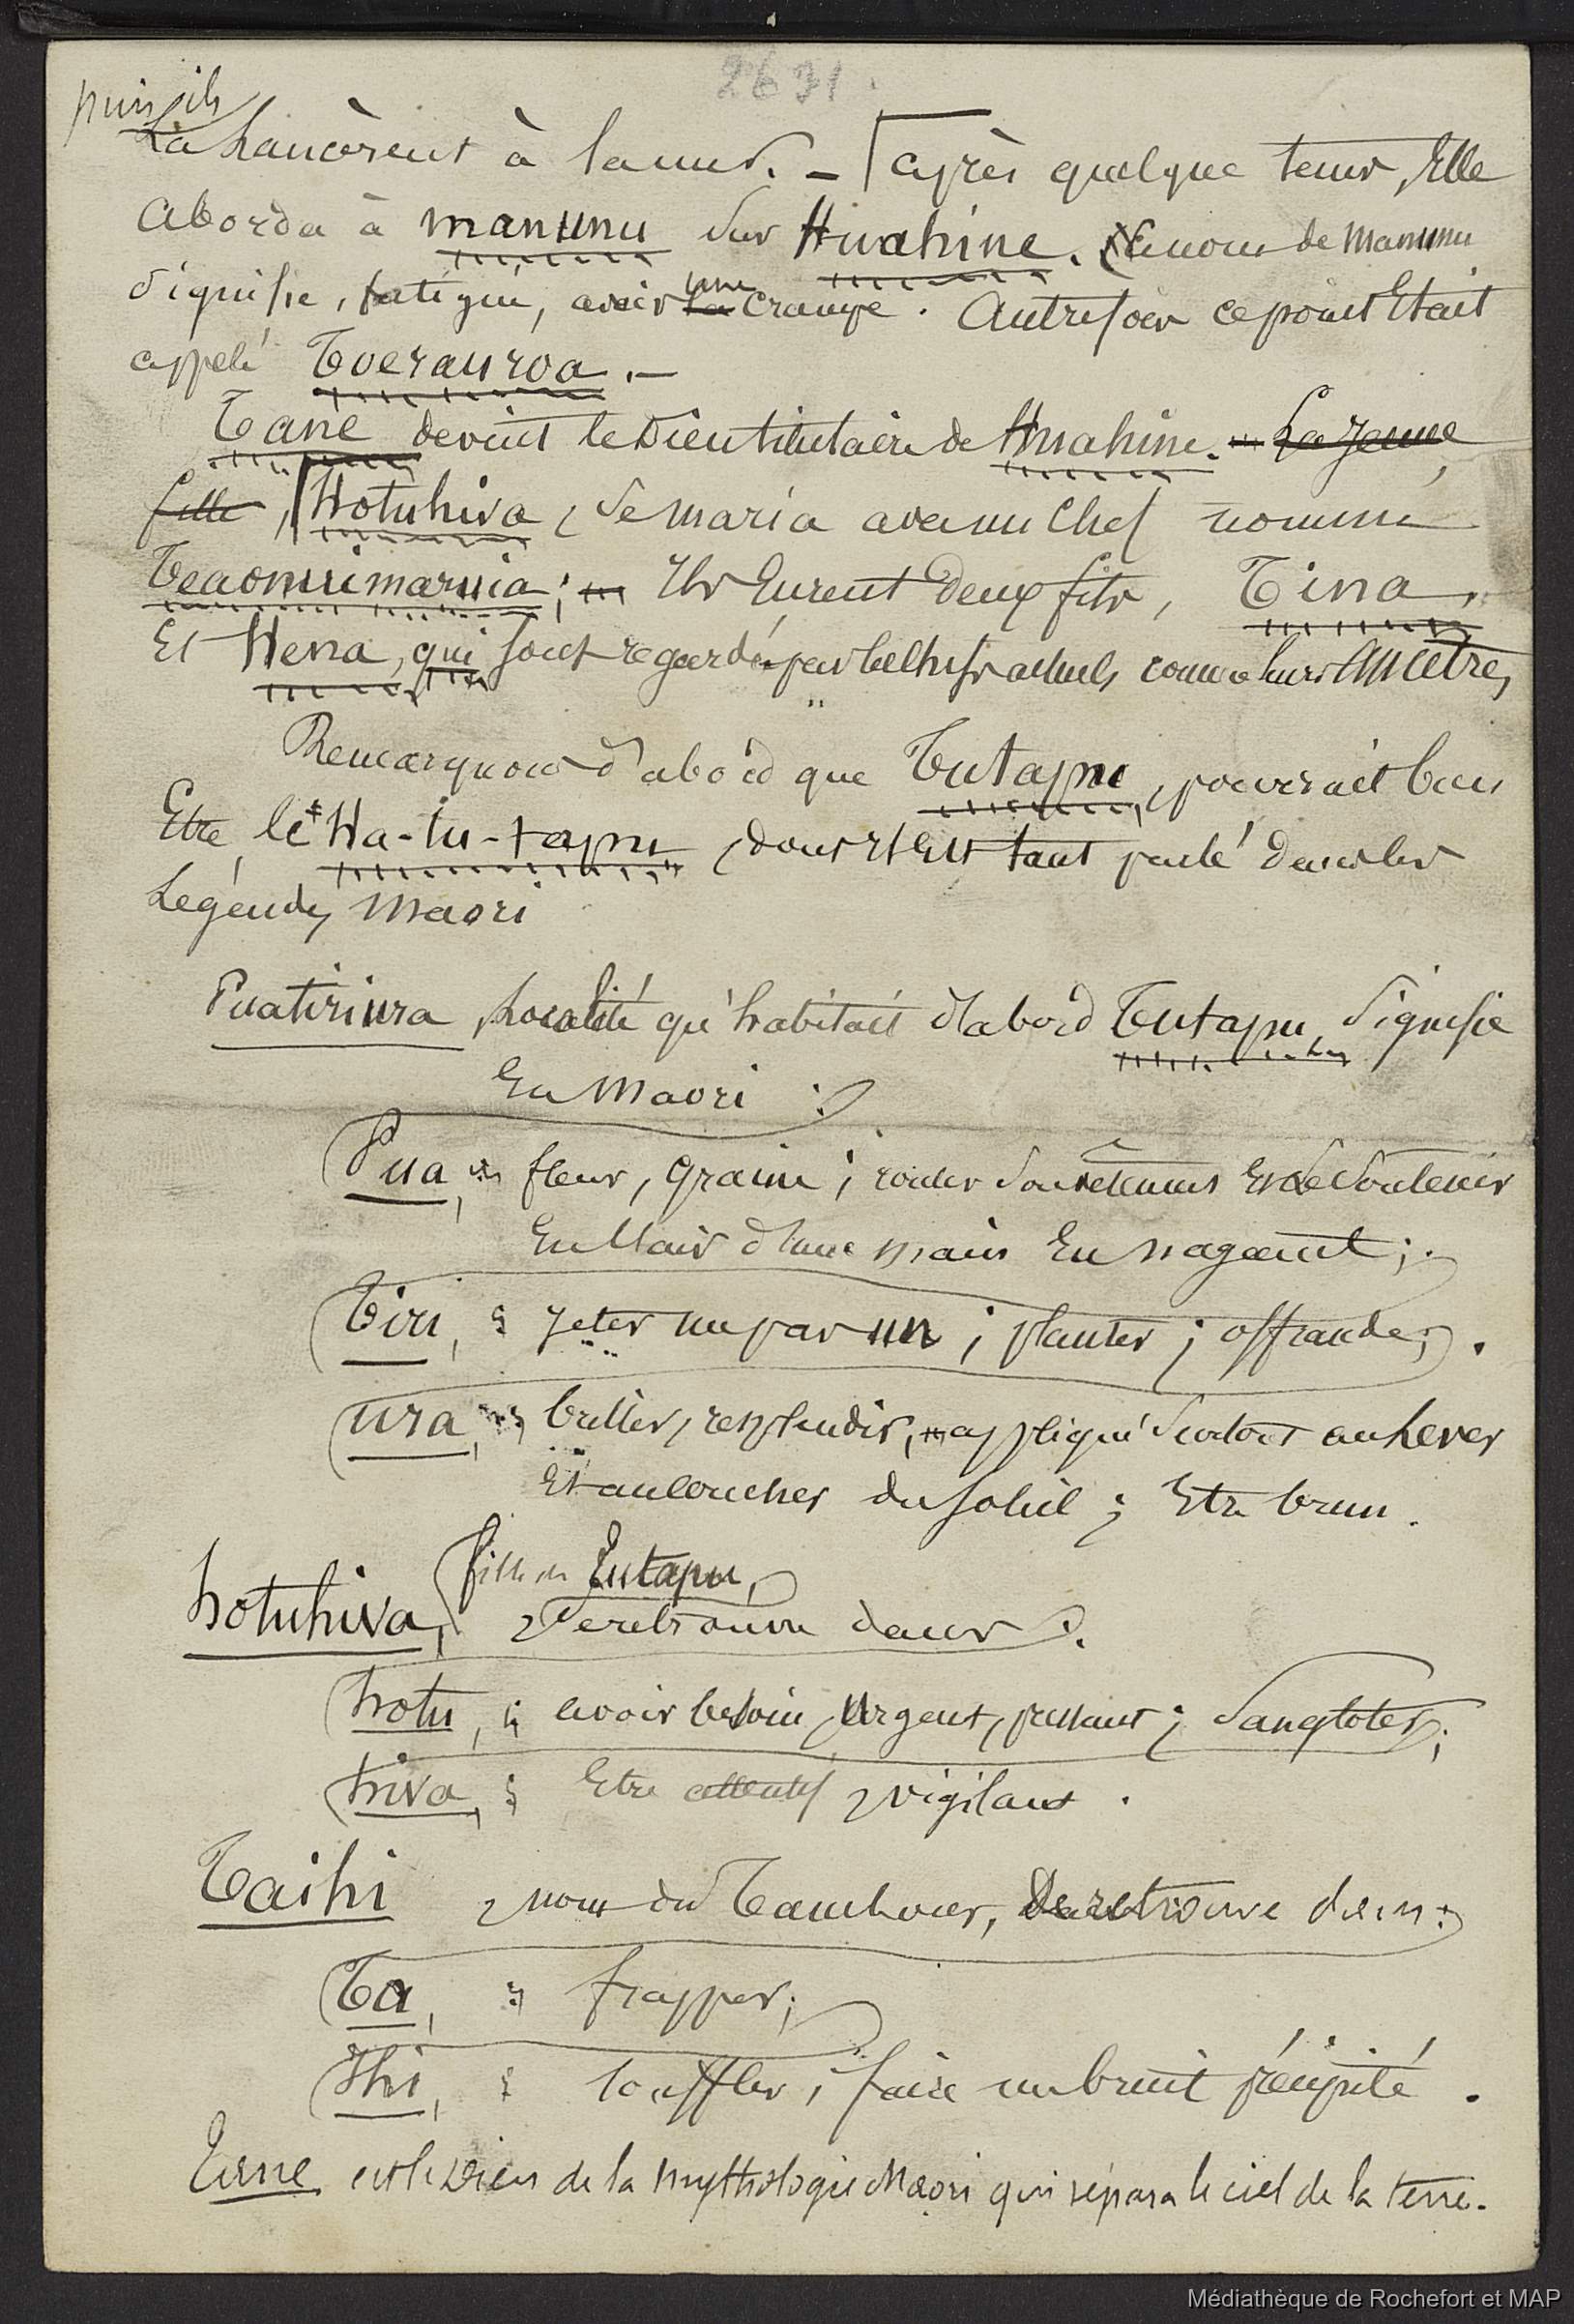 2631.
puis ils
La Lancèrent à la mer. — après quelque tems, Elle
Aborda à Manunu sur Huahine. (le nom de Manunu
signifie, fatigué, avoir la une crampe. Autrefois ce point Etait
appelé Toerauroa. —
Tane devint le Dieu titulaire de Huahine. — La Jeune
fille, Hotuhiva, se maria avec un Chef nommé
Teaonuimaruia; Ils Eurent Deux fils, Tina,
Et Hena, qui sont regardés par les chefs actuels comme leurs Ancêtres
Remarquons d'abord que Tutapu, pourrait bien
Etre, le Ha-tu-tapu, dont il Est tant parlé dans les
Légendes Maori
Puatiriura, Localité qu'habitait d'abord Tutapu, signifie
En Maori :
Pua, fleur, graine; rouler Et se soutenir
En l'air d'une main En nageant;
Tiri, Jeter un par un; planter; offrande;
ura, briller, resplendir, appliqué surtout au Lever
Et au Coucher du soleil; Etre brun.
fille de Tutapu,
hotuhiva, se retrouve dans :
hotu, avoir besoin, Urgent, pressant; sangloter;
hiva, Etre attentif, vigilant.
Taihi, nom du Tambour, Se retrouve dans :
Ta, frapper;
Ihi, souffler; faire un bruit précipité.
Tane est le Dieu de la Mythologie Maori qui sépara le ciel de la terre.
Médiathèque de Rochefort et MAP